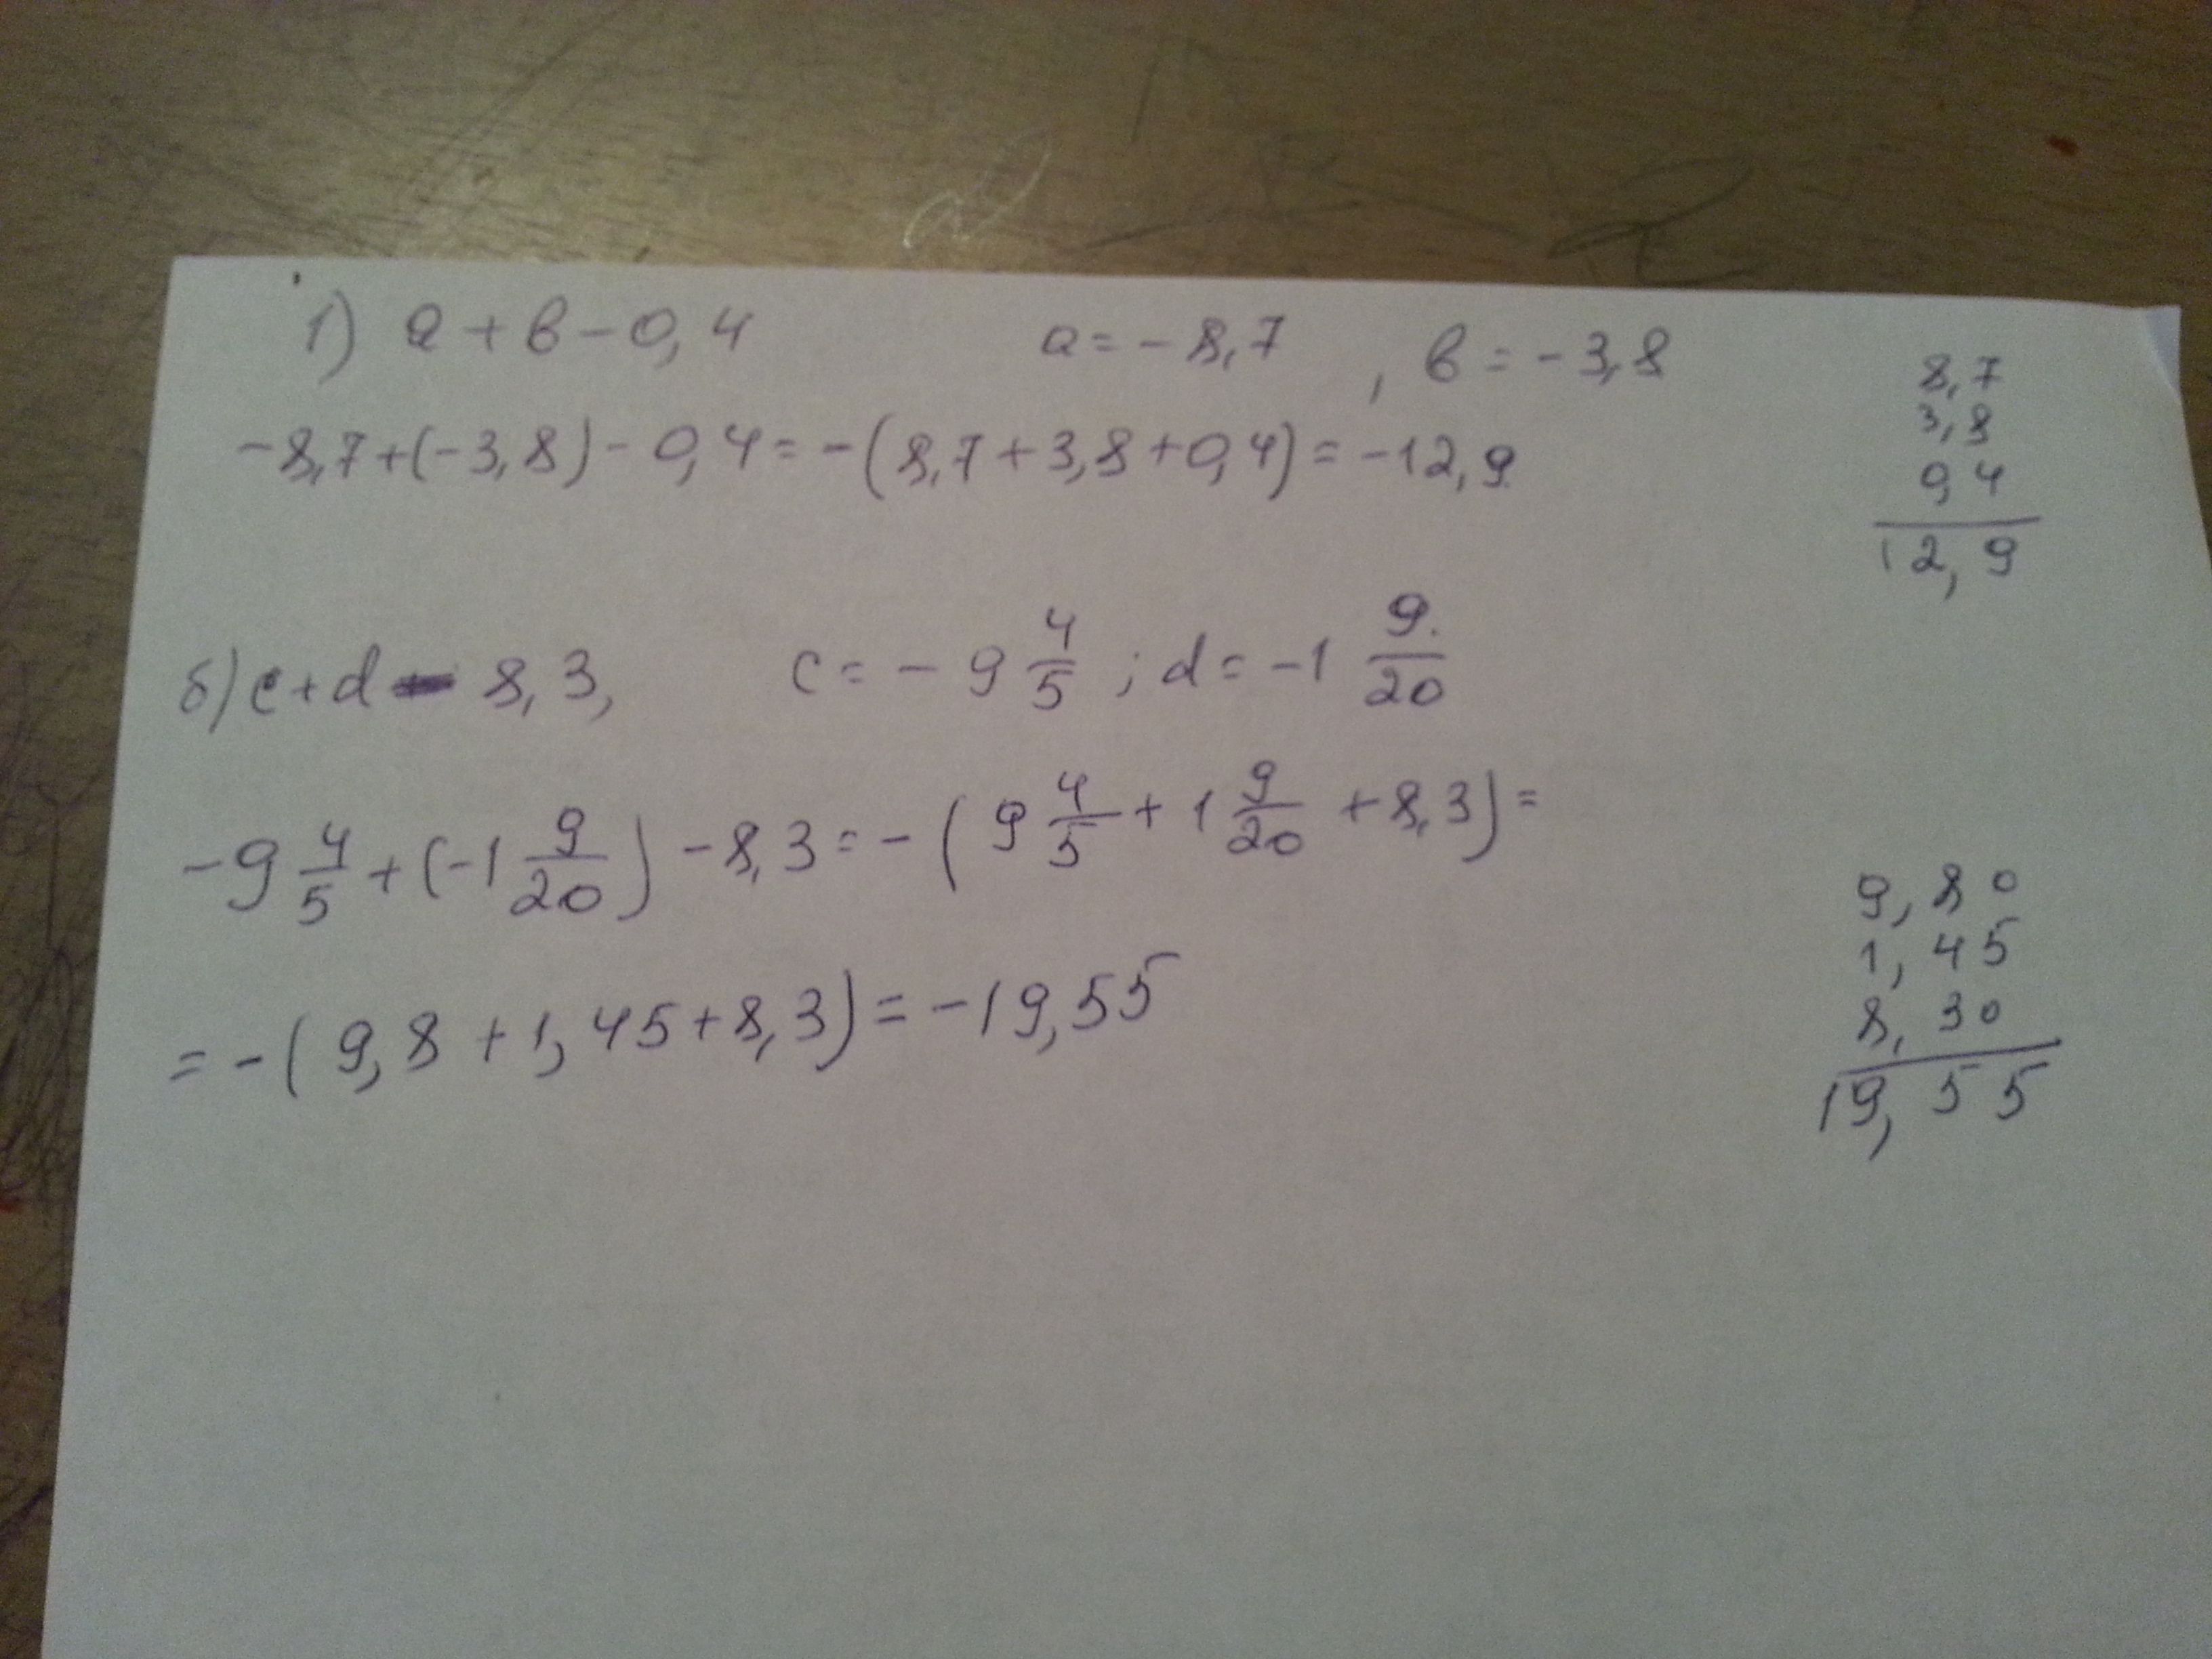 1) a + в - 0,4 a = - 8,7 , в = - 3,8
-8,7+(-3,8) - 0,4 = -(8,7+3,8+0,4) = -12,9
8,7
3,8
0,4
12,9
б) c+d - 8,3, c = - 9 4/5 ; d = -1 9/20
-9 4/5 + (-1 9/20) - 8,3 = - (9 4/5 + 1 9/20 + 8,3) =
= - (9,8 + 1,45 + 8,3) = -19,55
9,80
1,45
8,30
19,55